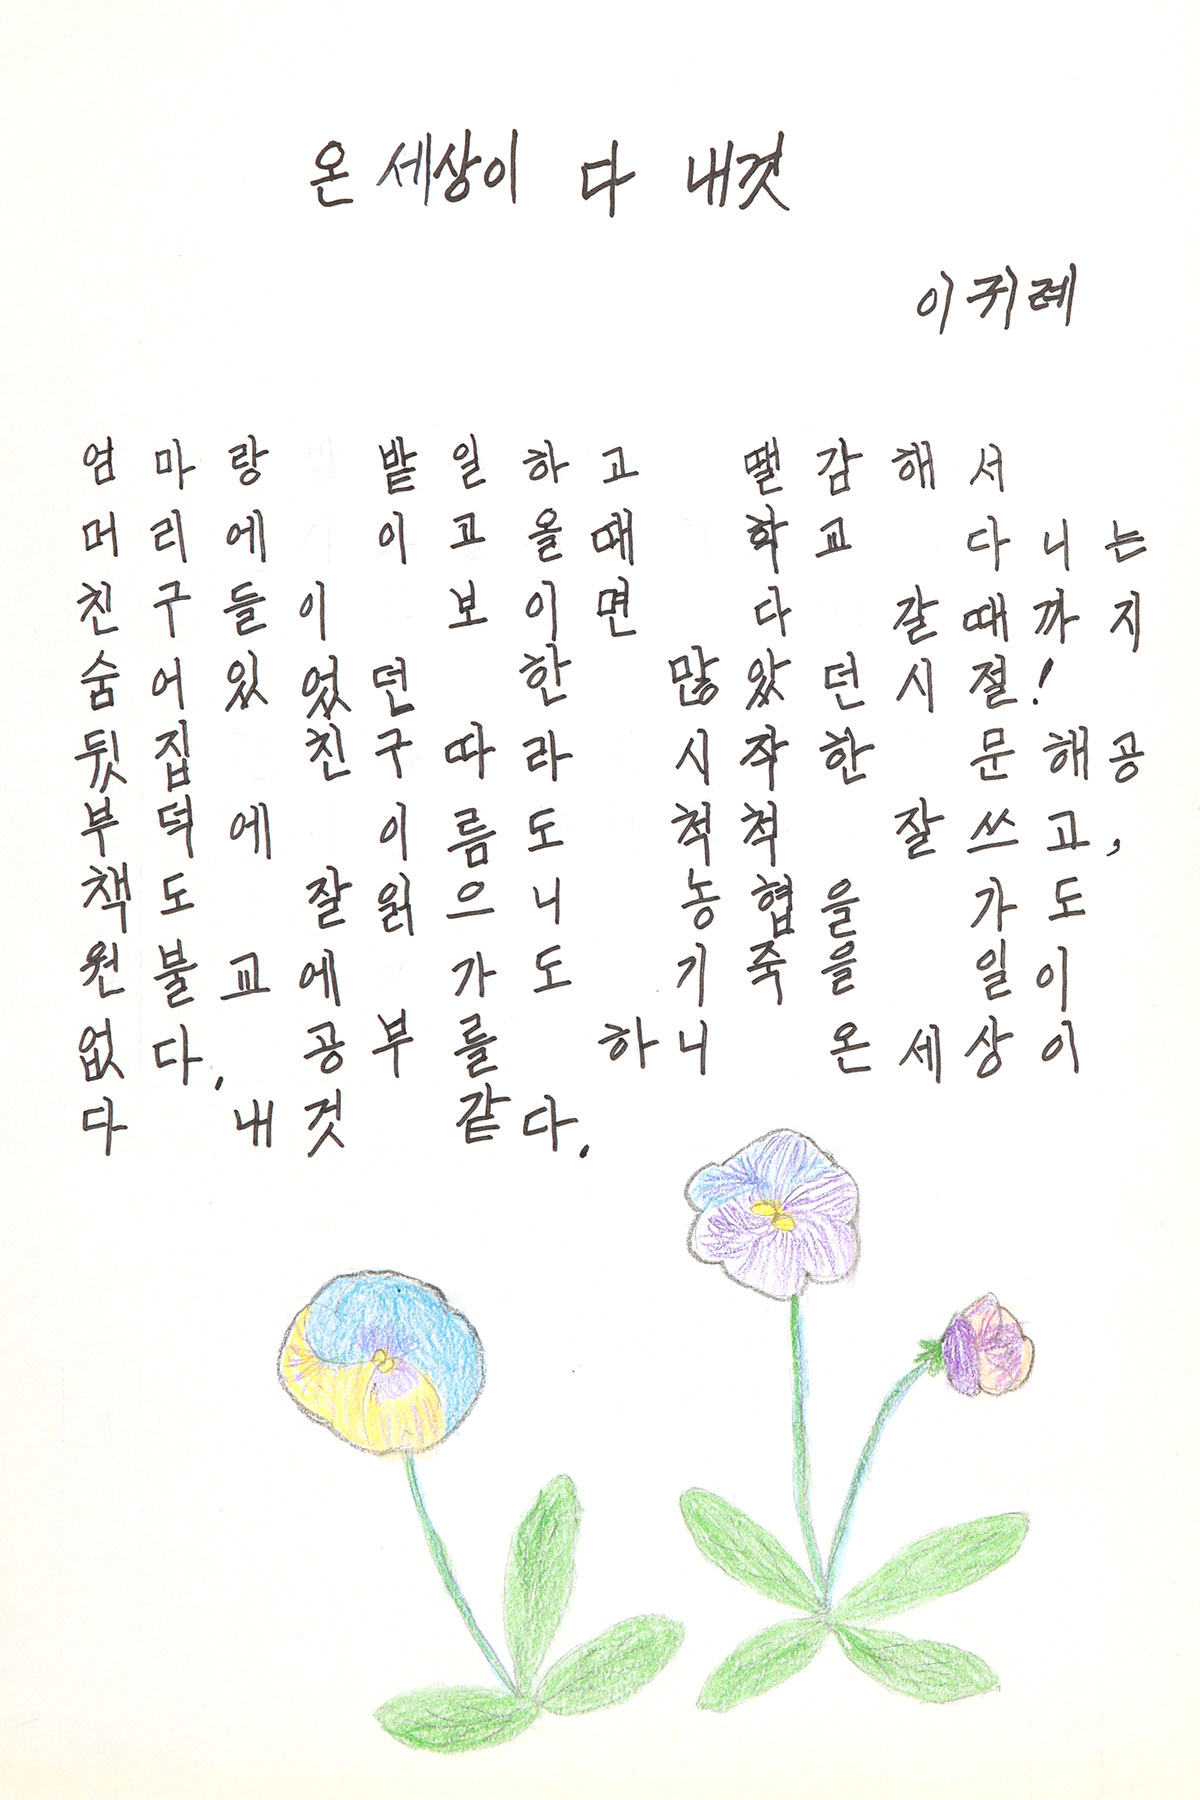 온 세상이 다 내것
이귀례
엄마랑 밭일하고 땔감해서
머리에 이고올때 학교 다니는
친구들이 보이면 다 갈때까지
숨어있었던 한 많았던시절!
뒷집 친구따라 시작한 문해공
부덕에 이름도 척척 잘쓰고,
책도 잘읽으니 농협을 가도
원불교에 가도 기죽을 일이
없다. 공부를 하니 온세상이
다 내것 같다.